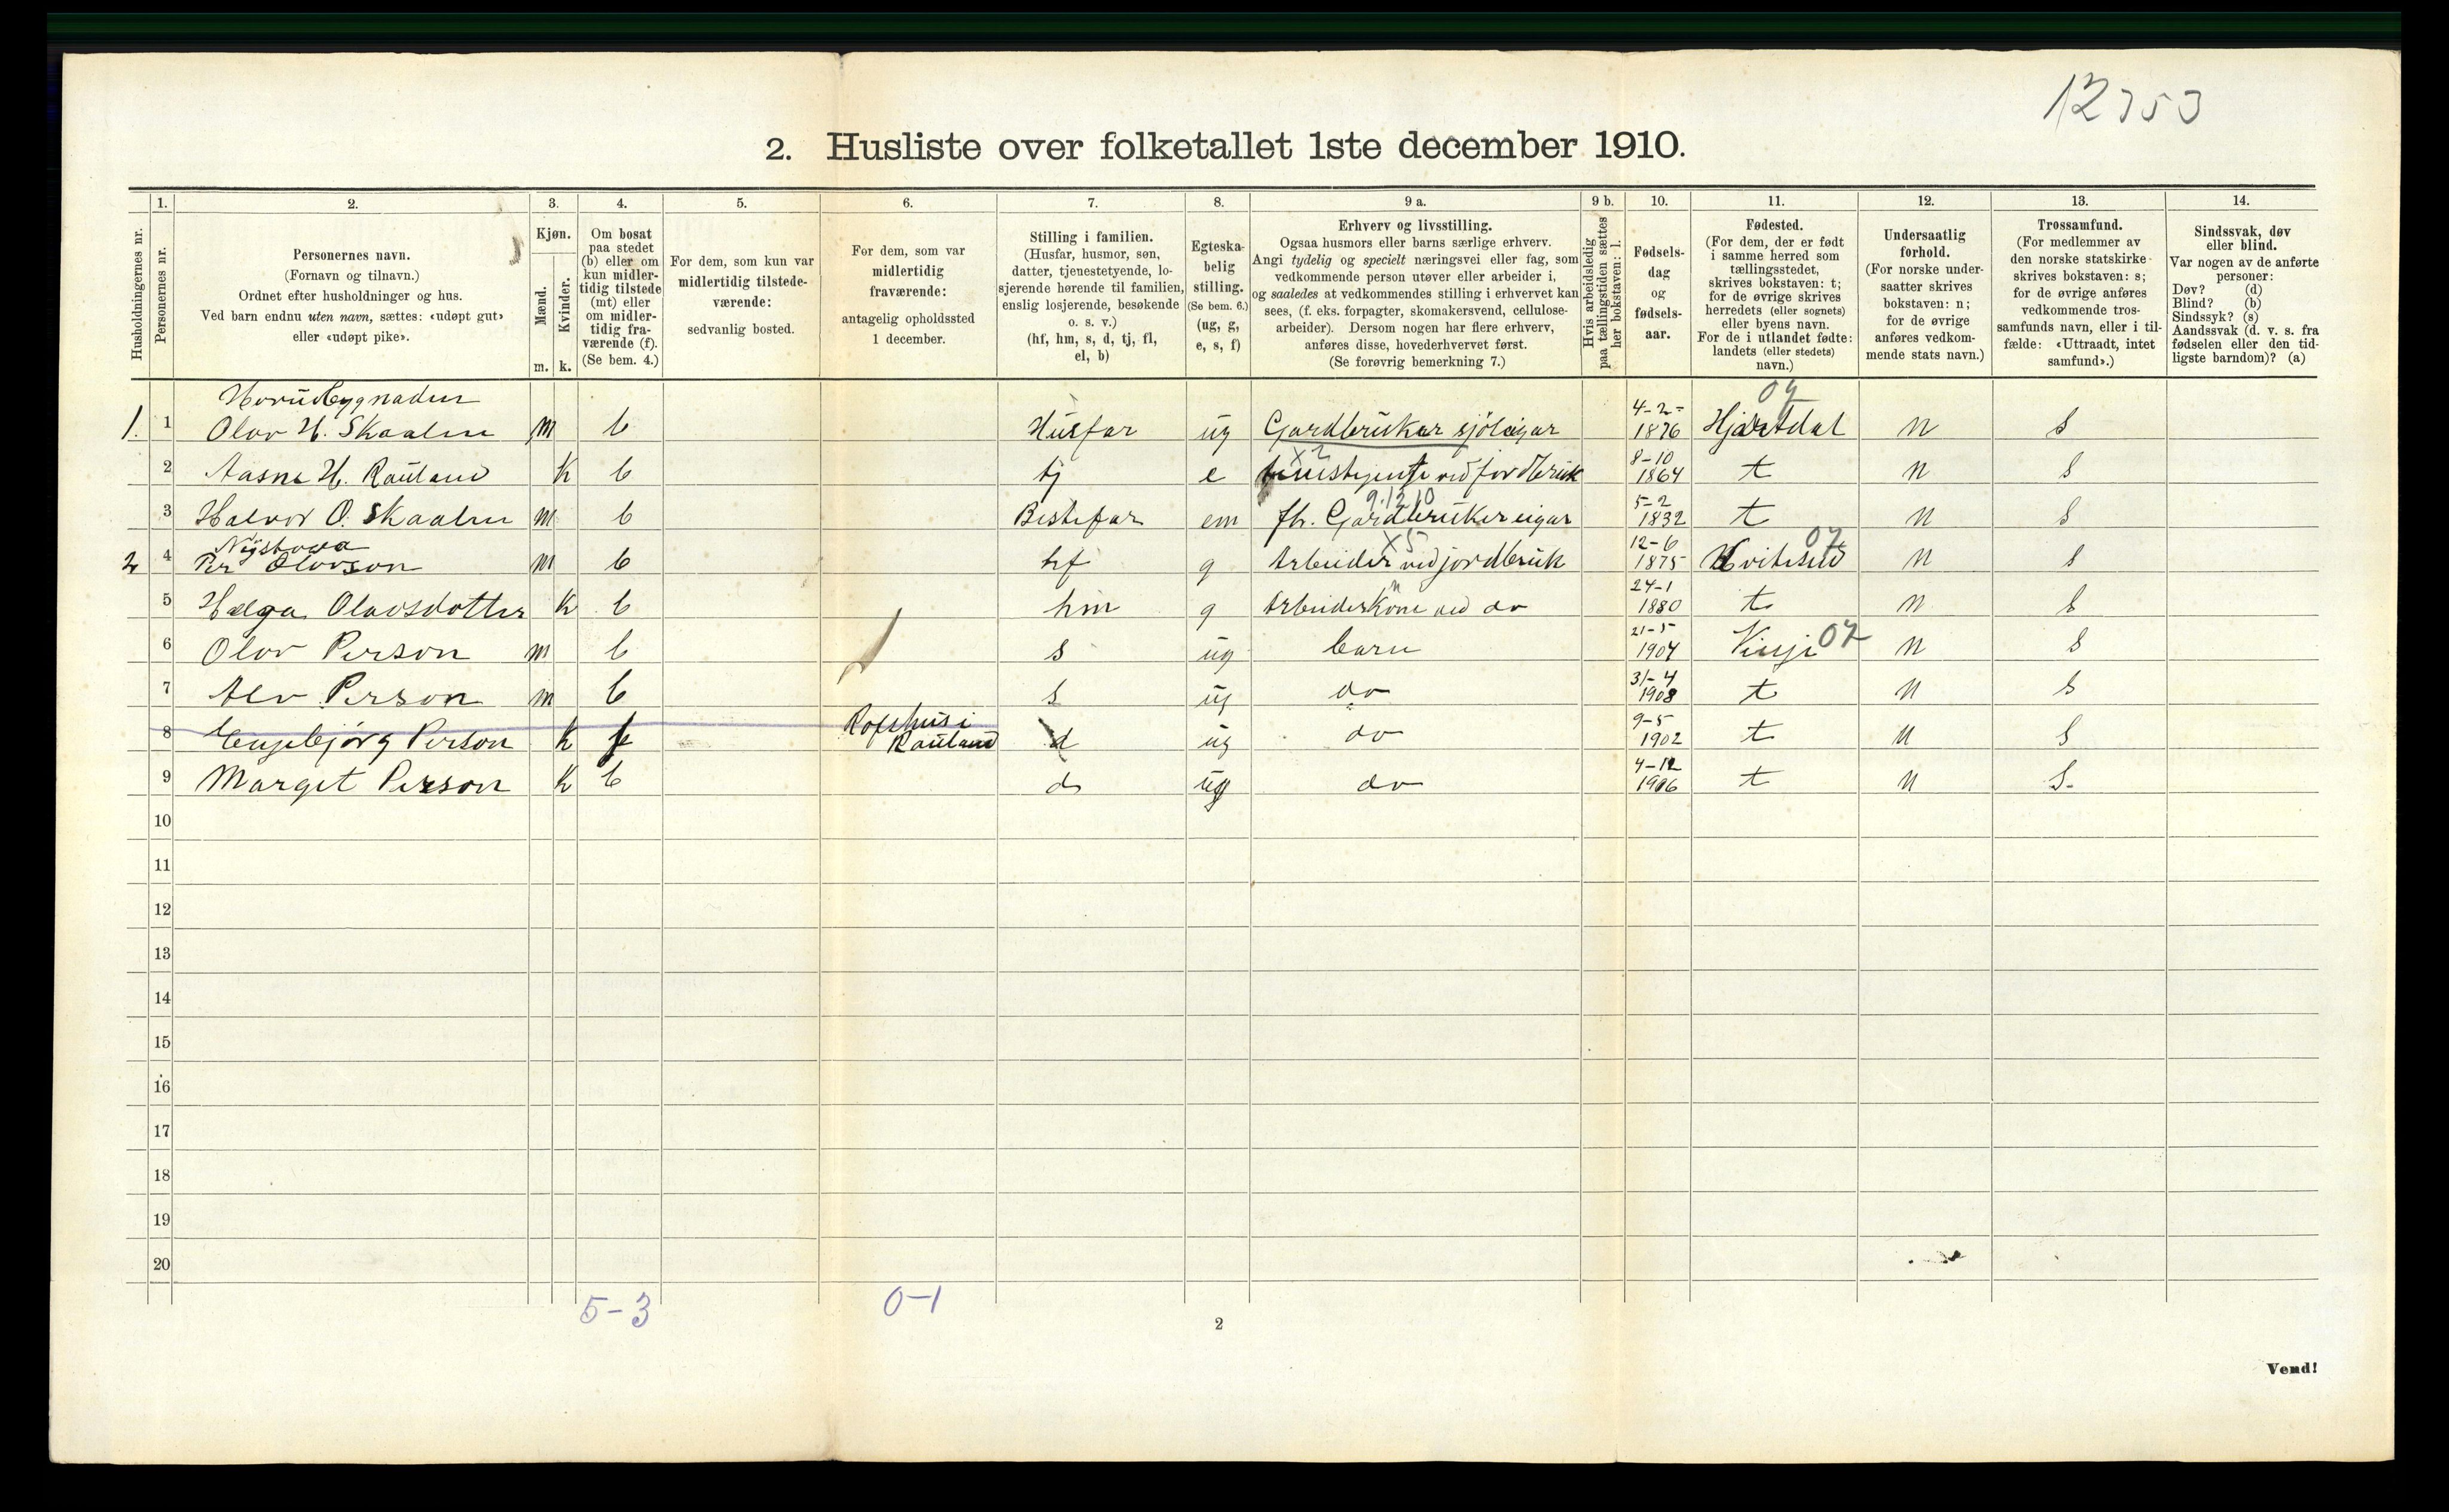 12353
2. Husliste over folketallet 1ste december 1910.
Husholdningernes nr.
1.
Personernes nr.
2.
Personernes navn.
(Fornavn og tilnavn.)
Ordnet efter husholdninger og hus.
Ved barn endnu uten navn, sættes: «udøpt gut»
eller «udøpt pike».
3.
Kjøn.
Mænd.
Kvinder.
m. k.
4.
Om bosat
paa stedet
(b) eller om
kun midler-
tidig tilstede
(mt) eller
om midler-
tidig fra-
værende (f).
(Se bem. 4.)
5.
For dem, som kun var
midlertidig tilstede-
værende:
sedvanlig bosted.
6.
For dem, som var
midlertidig
fraværende:
antagelig opholdssted
1 december.
7.
Stilling i familien.
(Husfar, husmor, søn,
datter, tjenestetyende, lo-
sjerende hørende til familien,
enslig losjerende, besøkende
o. s. v.)
(hf, hm, s, d, tj, fl,
el, b)
8.
Egteska-
belig
stilling.
(Se bem. 6.)
(ug, g,
e, s, f)
9 a.
Erhverv og livsstilling.
Ogsaa husmors eller barns særlige erhverv.
Angi tydelig og specielt næringsvei eller fag, som
vedkommende person utøver eller arbeider i,
og saaledes at vedkommendes stilling i erhvervet kan
sees, (f. eks. forpagter, skomakersvend, cellulose-
arbeider). Dersom nogen har flere erhverv,
anføres disse, hovederhvervet først.
(Se forøvrig bemerkning 7.)
9 b.
Hvis arbeidsledig
paa tællingstiden sættes
her bokstaven: l.
10.
Fødsels-
dag
og
fødsels-
aar.
11.
Fødested.
(For dem, der er født
i samme herred som
tællingsstedet,
skrives bokstaven: t;
for de øvrige skrives
herredets (eller sognets)
eller byens navn.
For de i utlandet fødte:
landets (eller stedets)
navn.)
12.
Undersaatlig
forhold.
(For norske under-
saatter skrives
bokstaven: n;
for de øvrige
anføres vedkom-
mende stats navn.)
13.
Trossamfund.
(For medlemmer av
den norske statskirke
skrives bokstaven: s;
for de øvrige anføres
vedkommende tros-
samfunds navn, eller i til-
fælde: «Uttraadt, intet
samfund».)
14.
Sindssvak, døv
eller blind.
Var nogen av de anførte
personer:
Døv? (d)
Blind? (b)
Sindssyk? (s)
Aandssvak (d. v. s. fra
fødselen eller den tid-
ligste barndom)? (a)
07
1. 1 Olav H. Skaalen m b Husfar ug Gardbrukar sjøleigar 4-2- 1876 Hjartdal n s
x2
2 Aasne H. Rauland k b tj e ved jordbruk 8-10 1864 t n s
9.12.10
3 Halvor O. Skaalen m b Bestefar em fh. Gardbruker eigar 5-2 1832 t n s
Nystova x5 07
2 4 Per Olavson m b hf g Arbeider ved jordbruk 12-6 1875 Hviteseid n s
5 Helga Olavsdotter k b hm g Arbeiderkone ved do 24-1 1880 t n s
6 Olav Person m b s ug barn 21-5 1904 Vinje 07 n s
7 Alv Person m b s ug do 31-4 1908 t n s
8 Engebjørg Person k f Rofshus i Rauland d ug do 9-5 1902 t n s
9 Marget Person k b d ug do 4-12 1906 t n s
10
11
12
13
14
15
16
17
18
19
20
5-3 0-1
2
Vend!